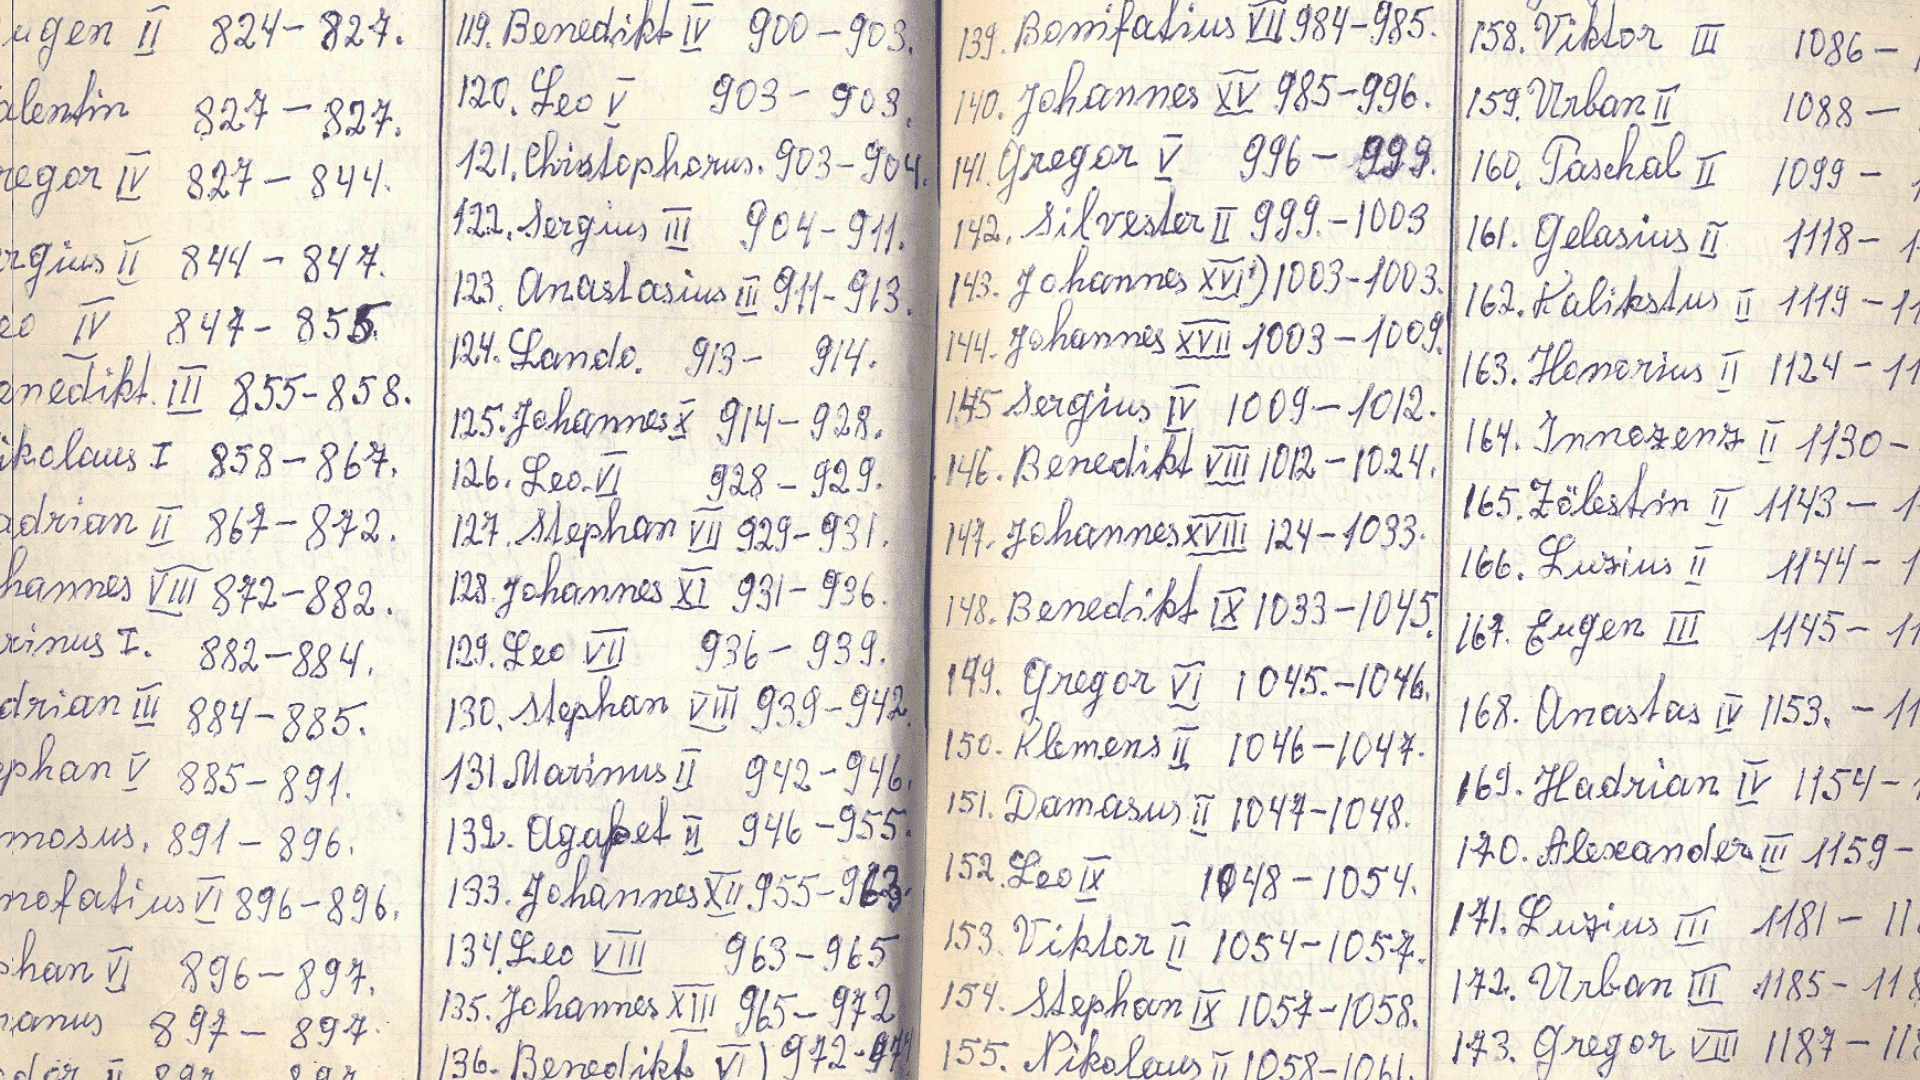 ugen II 824-827.
alentin 827-827.
regor IV 827-844.
rgius II 844-847.
eo IV 847-855
enedikt. III 855-858.
ikolaus I 858-867.
adrian II 867-872.
hannes VIII 872-882.
rinus I. 882-884.
drian III 884-885.
ephan V 885-891.
mosus. 891-896.
nofatius VI 896-896.
phan VI 896-897.
manus 897-897.
119. Benedikt IV 900-903.
120. Leo V 903-903.
121. Christophorus. 903-904.
122. Sergius III 904-911.
123. Anastasius III 911-913.
124. Lando. 913- 914.
125. Johannes X 914-928.
126. Leo. VI 928-929.
127. Stephan VII 929-931.
128. Johannes XI 931-936.
129. Leo VII 936-939.
130. Stephan VIII 939-942.
131 Marinus II 942-946.
132. Agapet II 946-955.
133. Johannes XII 955-963.
134. Leo VIII 963-965
135. Johannes XIII 965-972
136. Benedikt VI) 972-974
139. Bonifatius VII 984-985.
140. Johannes XV 985-996.
141. Gregor V 996-999.
142. Silvester II 999.-1003
143. Johannes XVI¹) 1003-1003.
144. Johannes XVII 1003-1009.
145 Sergius IV 1009-1012.
146. Benedikt VIII 1012-1024.
147. Johannes XVIII 124-1033.
148. Benedikt IX 1033-1045.
149. Gregor VI 1045.-1046.
150. Klemens II 1046-1047.
151. Damasus II 1047-1048.
152. Leo IX 1048-1054.
153. Viktor II 1054-1057.
154. Stephan IX 1057-1058.
155. Nikolaus II 1058-1061.
158. Viktor III 1086-
159. Urban II 1088-
160. Paschal II 1099-
161. Gelasius II 1118-1
162. Kalikstus II 1119-11
163. Honorius II 1124-11
164. Innozenz II 1130-
165. Zölestin II 1143-1
166. Luzius II 1144-1
167. Eugen III 1145-11
168. Anastas IV 1153.-11
169. Hadrian IV 1154-1
170. Alexander III 1159-
171. Luzius III 1181-11
172. Urban III 1185-118
173. Gregor VIII 1187-118